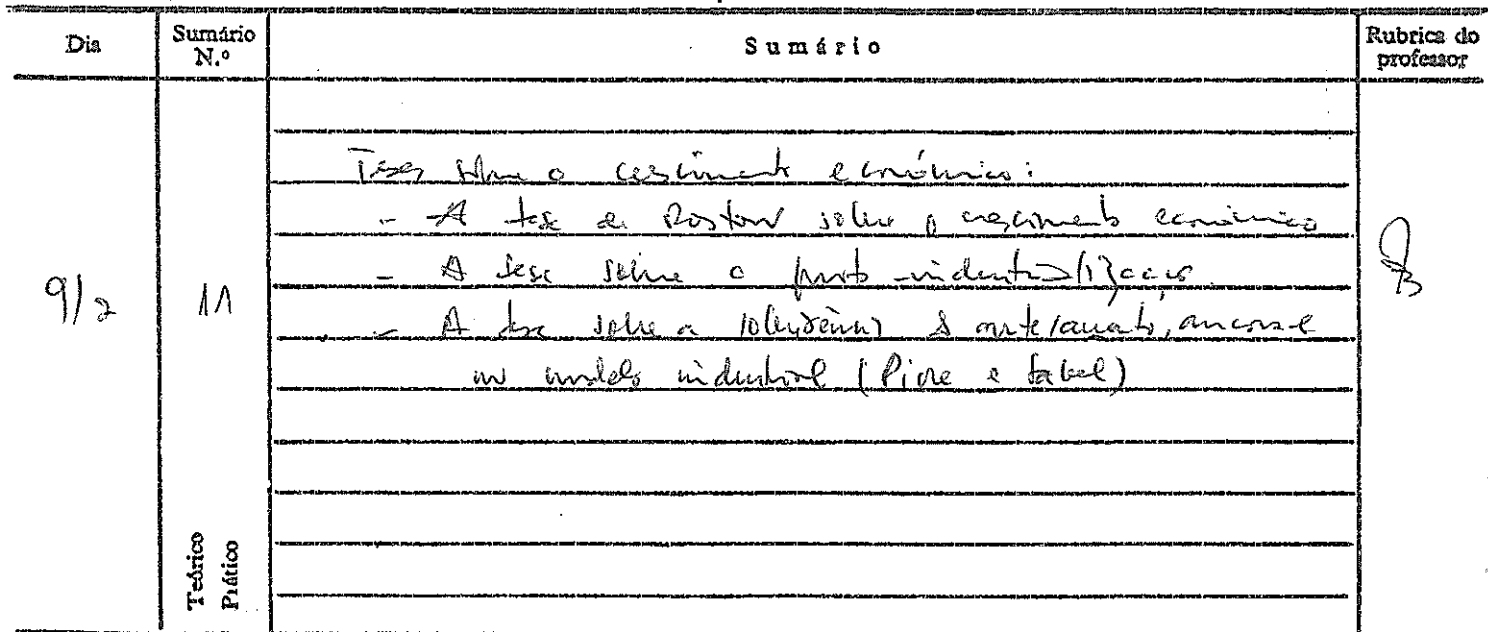 Dia
Sumário N.º
Sumário
Rubrica do professor
9/2
11
Teses sobre o crescimento económico:
- A tese de Rostow sobre o crescimento económico
- A tese sobre a proto-industrialização
- A tese sobre a artesanato,
no modelo industrial (Piore e Sabel)
Teórico
Prático